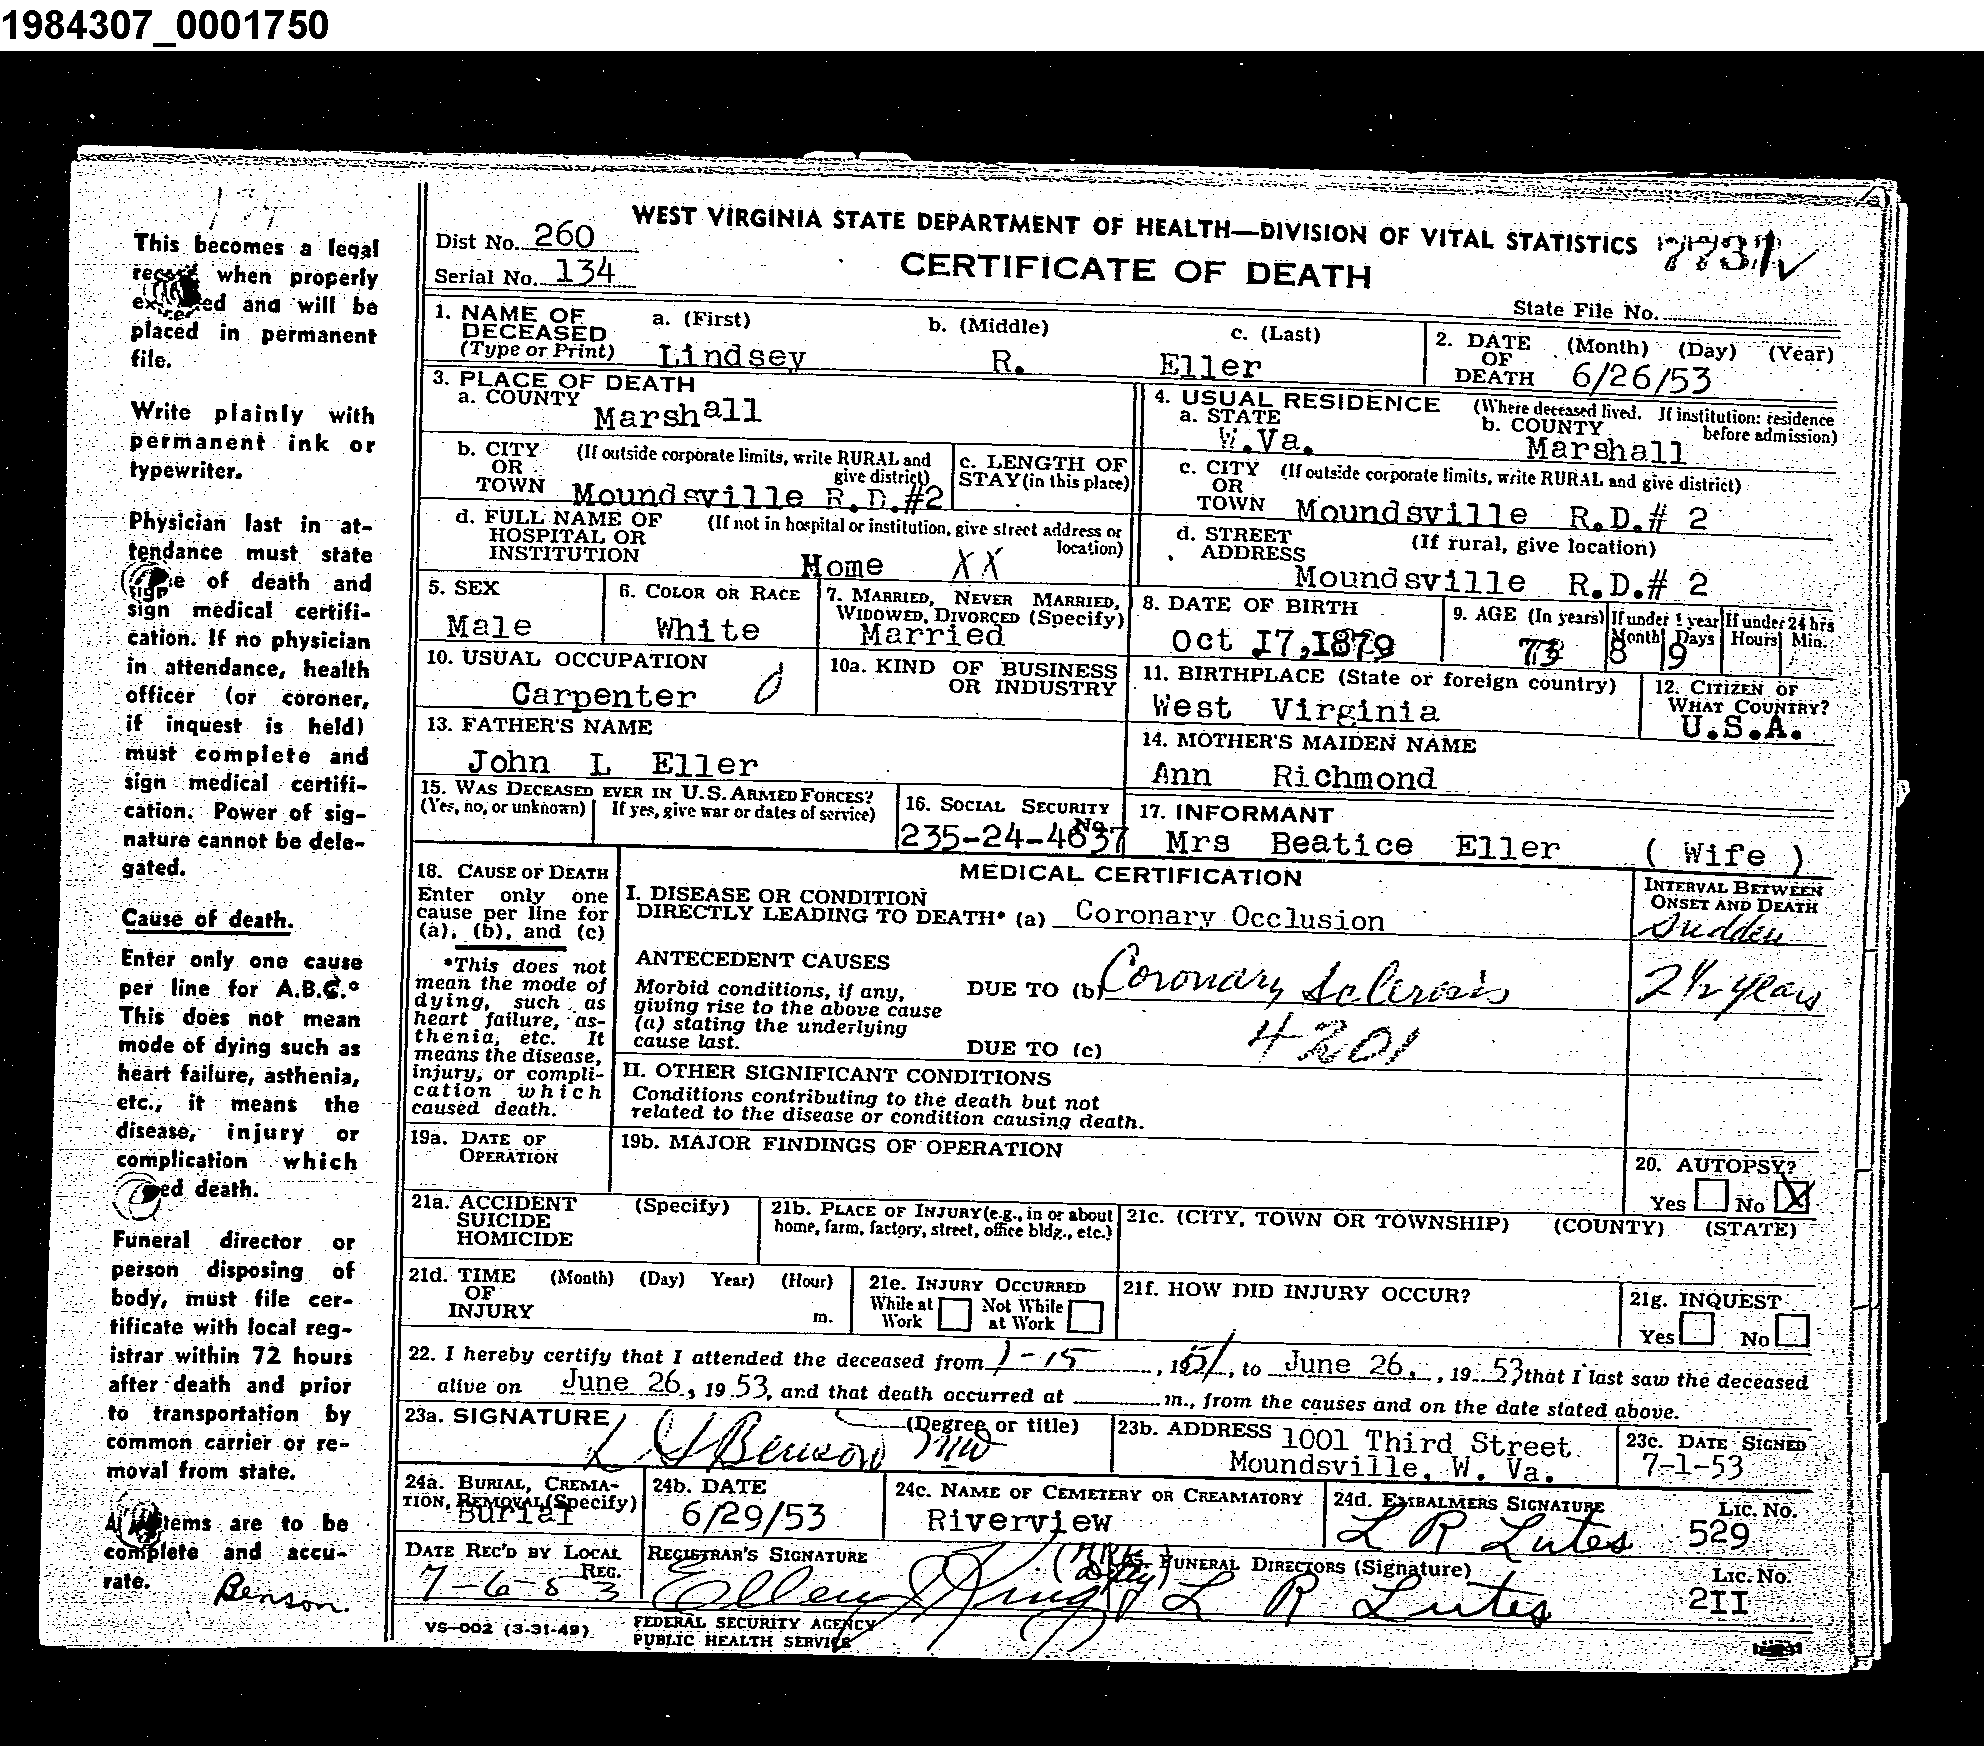 1984307_0001750
This becomes a legal
when properly
and will be
placed in permanent
file.
Write plainly with
permanent ink or
typewriter.
Physician last in at-
tendance must state
of death and
sign medical certifi-
cation. If no physician
in attendance, health
officer (or coroner,
if inquest is held)
must complete and
sign medical certifi-
cation. Power of sig-
nature cannot be dele-
gated.
Cause of death.
Enter only one cause
per line for A.B.C.*
This does not mean
mode of dying such as
heart failure, asthenia,
etc., it means the
disease, injury or
complication which
death.
Funeral director or
person disposing of
body, must file cer-
tificate with local reg-
istrar within 72 hours
after death and prior
to transportation by
common carrier or re-
moval from state.
items are to be
complete and accu-
rate.
Benson.
WEST VIRGINIA STATE DEPARTMENT OF HEALTH—DIVISION OF VITAL STATISTICS
Dist No. 260
Serial No. 134
CERTIFICATE OF DEATH
State File No.
1. NAME OF DECEASED (Type or Print) a. (First) Lindsey b. (Middle) R. c. (Last) Eller
2. DATE OF DEATH (Month) (Day) (Year) 6/26/53
3. PLACE OF DEATH
a. COUNTY Marshall
4. USUAL RESIDENCE (Where deceased lived. If institution: residence before admission)
a. STATE W.Va. b. COUNTY Marshall
b. CITY OR TOWN (If outside corporate limits, write RURAL and give district) Moundsville R.D.#2
c. LENGTH OF STAY (in this place)
c. CITY OR TOWN (If outside corporate limits, write RURAL and give district) Moundsville R.D.# 2
d. FULL NAME OF HOSPITAL OR INSTITUTION (If not in hospital or institution, give street address or location) Home XX
d. STREET ADDRESS (If rural, give location) Moundsville R.D.# 2
5. SEX Male
6. COLOR OR RACE White
7. MARRIED, NEVER MARRIED, WIDOWED, DIVORCED (Specify) Married
8. DATE OF BIRTH Oct 17,1879
9. AGE (In years) 73 If under 1 year Month 8 Days 9 If under 24 hrs Hours Min.
10. USUAL OCCUPATION Carpenter
10a. KIND OF BUSINESS OR INDUSTRY
11. BIRTHPLACE (State or foreign country) West Virginia
12. CITIZEN OF WHAT COUNTRY? U.S.A.
13. FATHER'S NAME John L Eller
14. MOTHER'S MAIDEN NAME Ann Richmond
15. WAS DECEASED EVER IN U.S. ARMED FORCES? (Yes, no, or unknown) If yes, give war or dates of service)
16. SOCIAL SECURITY No. 235-24-4637
17. INFORMANT Mrs Beatice Eller ( Wife )
18. CAUSE OF DEATH
Enter only one cause per line for (a), (b), and (c)
*This does not mean the mode of dying, such as heart failure, asthenia, etc. It means the disease, injury, or complication which caused death.
MEDICAL CERTIFICATION
INTERVAL BETWEEN ONSET AND DEATH
I. DISEASE OR CONDITION DIRECTLY LEADING TO DEATH* (a) Coronary Occlusion Sudden
ANTECEDENT CAUSES
Morbid conditions, if any, giving rise to the above cause (a) stating the underlying cause last.
DUE TO (b) Coronary Sclerosis 2½ years
DUE TO (c) 4201
II. OTHER SIGNIFICANT CONDITIONS
Conditions contributing to the death but not related to the disease or condition causing death.
19a. DATE OF OPERATION
19b. MAJOR FINDINGS OF OPERATION
20. AUTOPSY? Yes No X
21a. ACCIDENT SUICIDE HOMICIDE (Specify)
21b. PLACE OF INJURY (e.g., in or about home, farm, factory, street, office bldg., etc.)
21c. (CITY, TOWN OR TOWNSHIP) (COUNTY) (STATE)
21d. TIME OF INJURY (Month) (Day) Year) (Hour) m.
21e. INJURY OCCURRED While at Work Not While at Work
21f. HOW DID INJURY OCCUR?
21g. INQUEST Yes No
22. I hereby certify that I attended the deceased from 1-15, 1951, to June 26, , 19 53 that I last saw the deceased
alive on June 26, 19 53, and that death occurred at m., from the causes and on the date stated above.
23a. SIGNATURE (Degree or title) Benson MD
23b. ADDRESS 1001 Third Street Moundsville, W. Va.
23c. DATE SIGNED 7-1-53
24a. BURIAL, CREMATION, REMOVAL (Specify) Burial
24b. DATE 6/29/53
24c. NAME OF CEMETERY OR CREAMATORY Riverview
24d. EMBALMERS SIGNATURE L R Lutes Lic. No. 529
DATE REC'D BY LOCAL REG. 7-6-53
REGISTRAR'S SIGNATURE Ellen King
25. FUNERAL DIRECTORS (Signature) L R Lutes Lic. No. 2II
VS-002 (3-31-49)
FEDERAL SECURITY AGENCY
PUBLIC HEALTH SERVICE